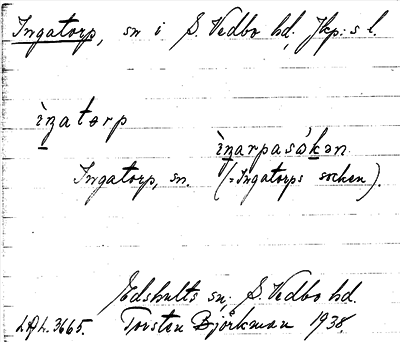 Ingatorp, sn i S. Vedbo hd, Jkp:s l.
ìŋatorp
ìŋarpasåkən
Ingatorp, sn. (= Ingatorps socken).
Edshults sn, S. Vedbo hd.
LAL. 3665. Torsten Björkman 1938.